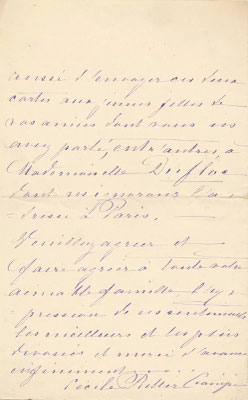 aussi d'envoyer ces deux
cartes aux jeunes filles de
vos amies dont vous nous
avez parlé, entr'autres, à
Mademoiselle Duflos
dont nous ignorons l'a=
=dresse à Paris.
Veuillez agréer et
faire agréer à toute votre
aimable famille l'ex=
=pression de nos sentiments
les meilleurs et les plus
dévoués et merci d'avance
infiniment
Cécile Ritter